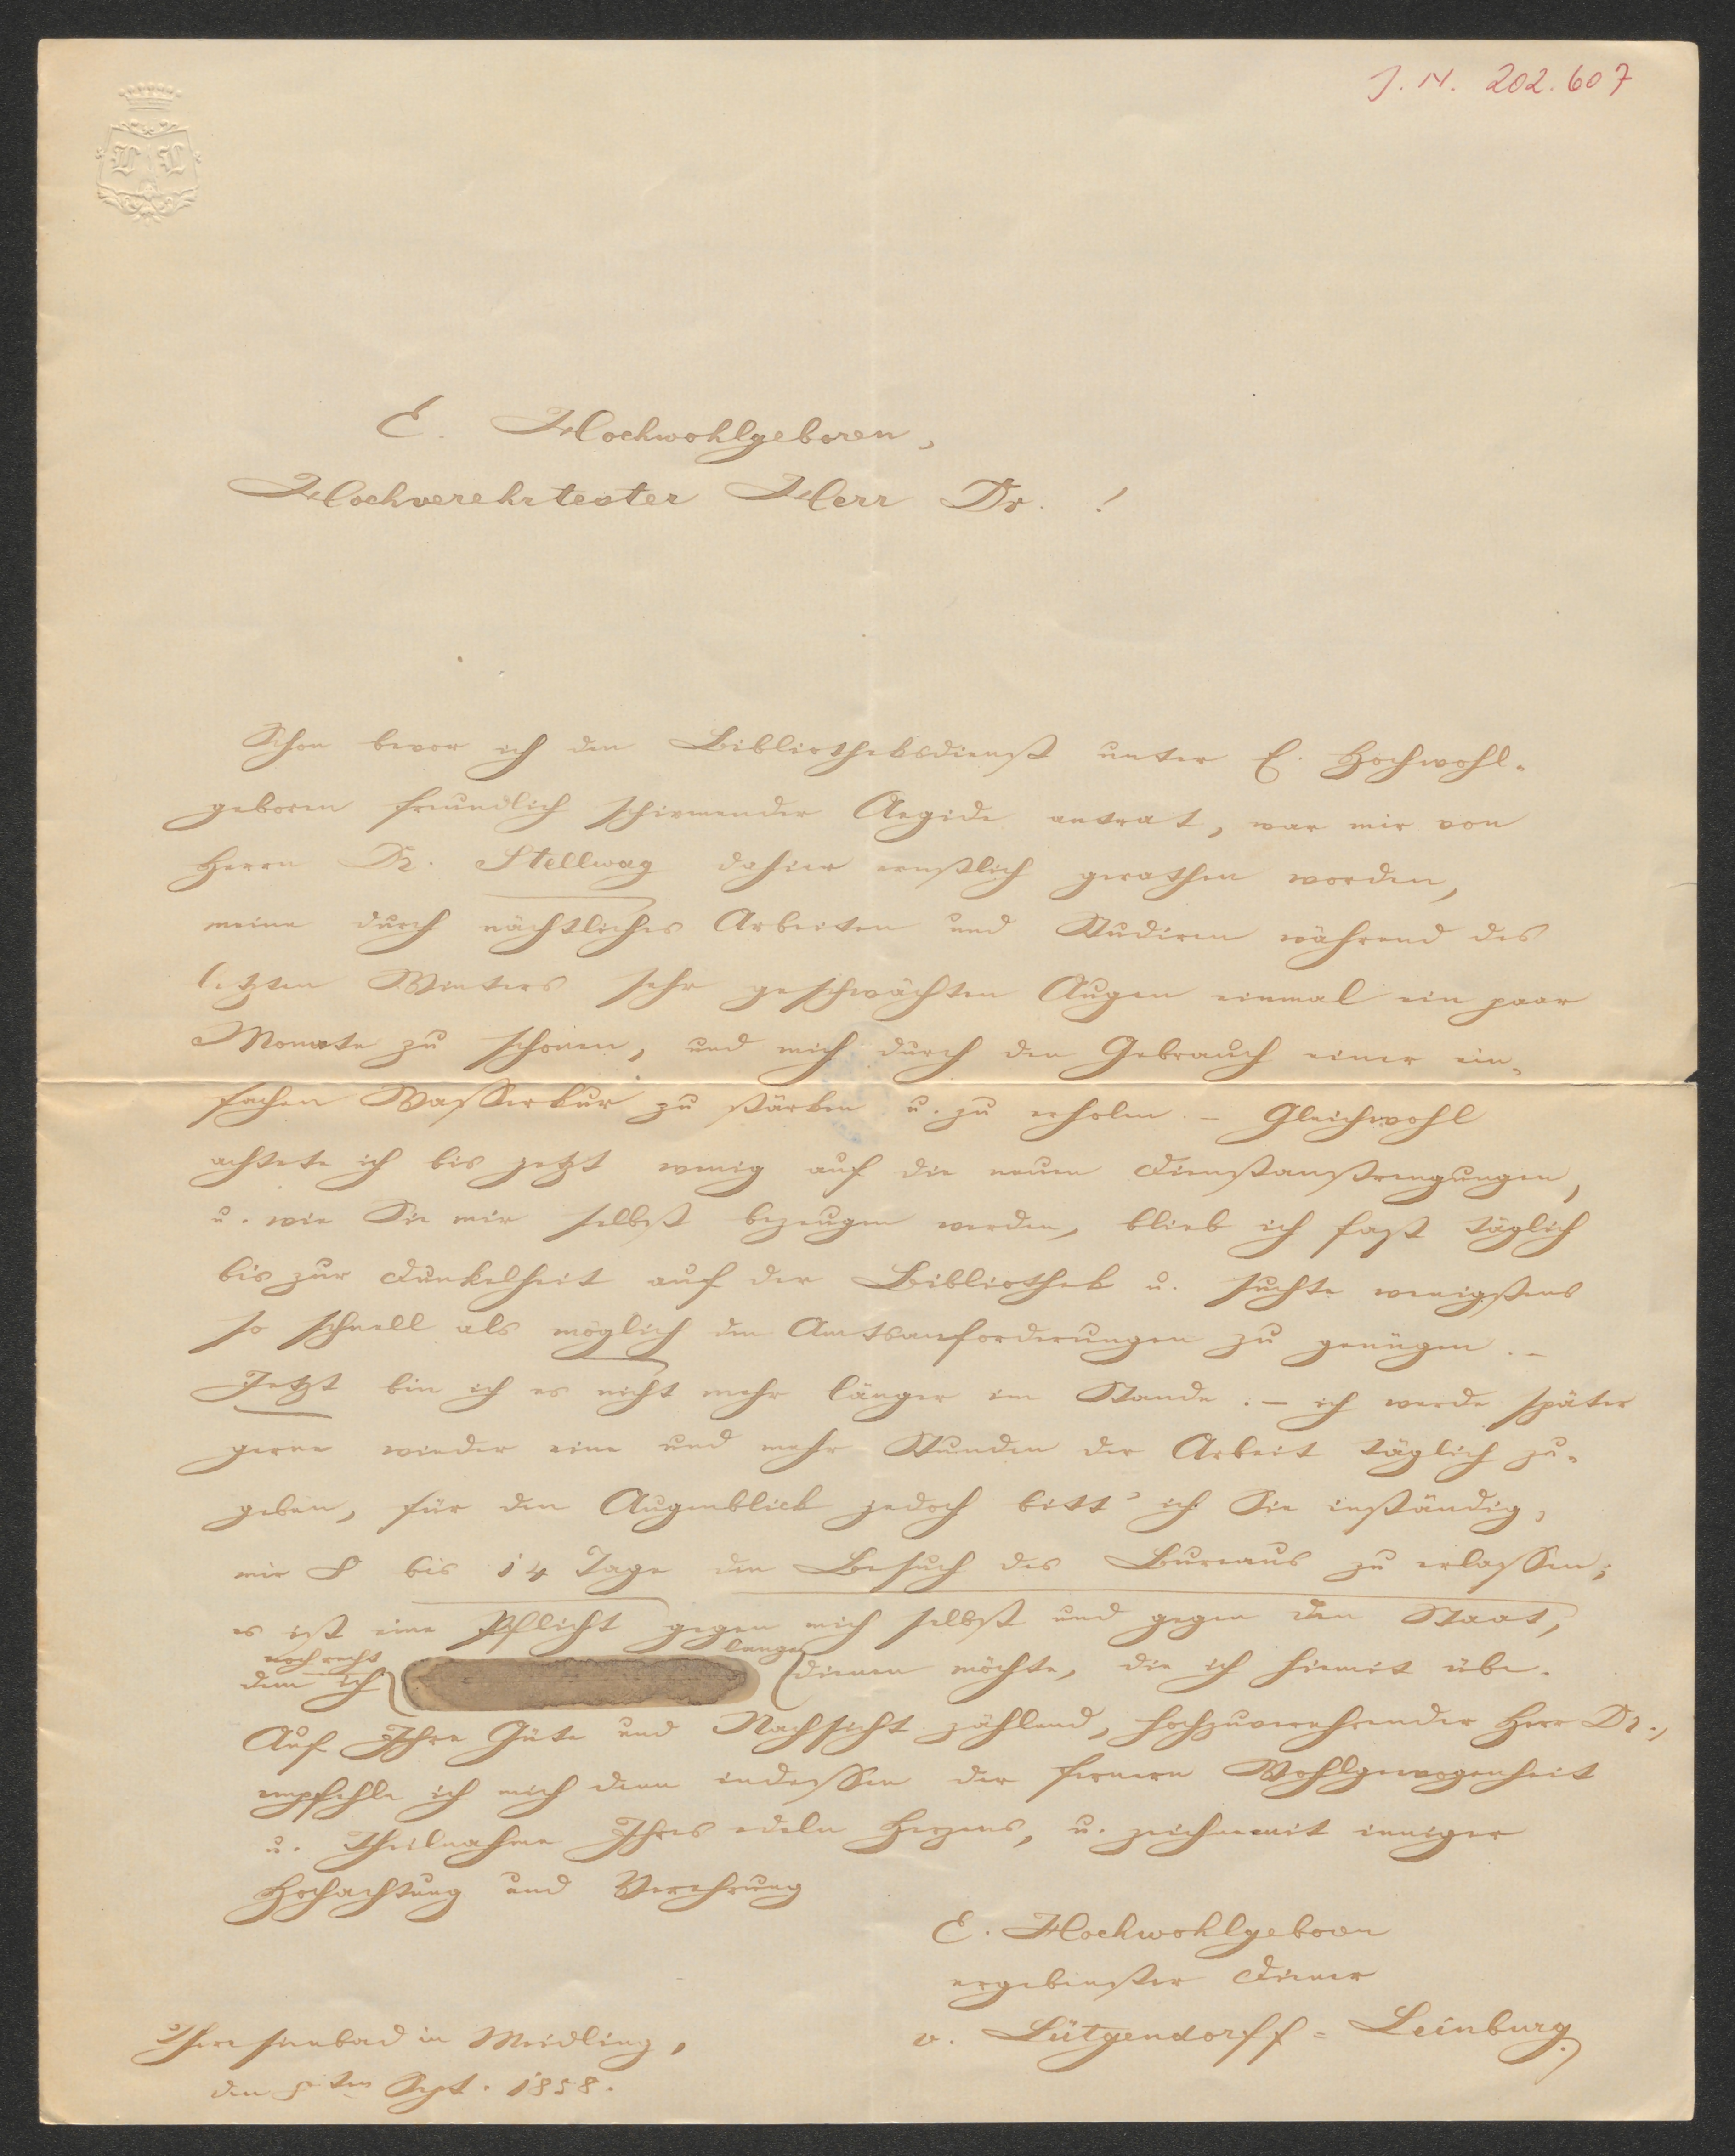 J. N. 202.607
E. Hochwohlgeboren,
Hochverehrtester Herr Dr. !
Schon bevor ich den Bibliotheksdienst unter E. Hochwohl-
geboren freundlich schirmender Aegide antrat, war mir von
Herrn Dr. Stellwag dahier ernstlich gerathen worden,
meine durch nächtliches Arbeiten und Studiren während des
letzten Winters sehr geschwächten Augen einmal ein paar
Monate zu schonen, und mich durch den Gebrauch einer ein-
fachen Wasserkur zu stärken u. zu erholen. – Gleichwohl
achtete ich bis jetzt wenig auf die neuen Dienstanstrengungen,
u. wie Sie mir selbst bezeugen werden, blieb ich fast täglich
bis zur Dunkelheit auf der Bibliothek u. suchte wenigstens
so schnell als möglich den Amtsanforderungen zu genügen. –
Jetzt bin ich es nicht mehr länger im Stande. – ich werde später
gerne wieder eine und mehr Stunden der Arbeit täglich zu-
geben, für den Augenblick jedoch bitt' ich Sie inständig,
mir 8 bis 14 Tage den Besuch des Bureaus zu erlassen;
es ist eine Pflicht gegen mich selbst und gegen den Staat,
noch recht lange
dem ich dienen möchte, die ich hiemit übe.
Auf Ihre Güte und Nachsicht zählend, hochzuverehrender Herr Dr.,
empfehle ich mich denn indessen der fernern Wohlgewogenheit
u. Theilnahme Ihres edeln Herzens, u. zeichne mit inniger
Hochachtung und Verehrung
E. Hochwohlgeboren
ergebenster Diener
v. Lütgendorff = Leinburg.
Theresienbad in Meidling,
den ten Sept. 1858.